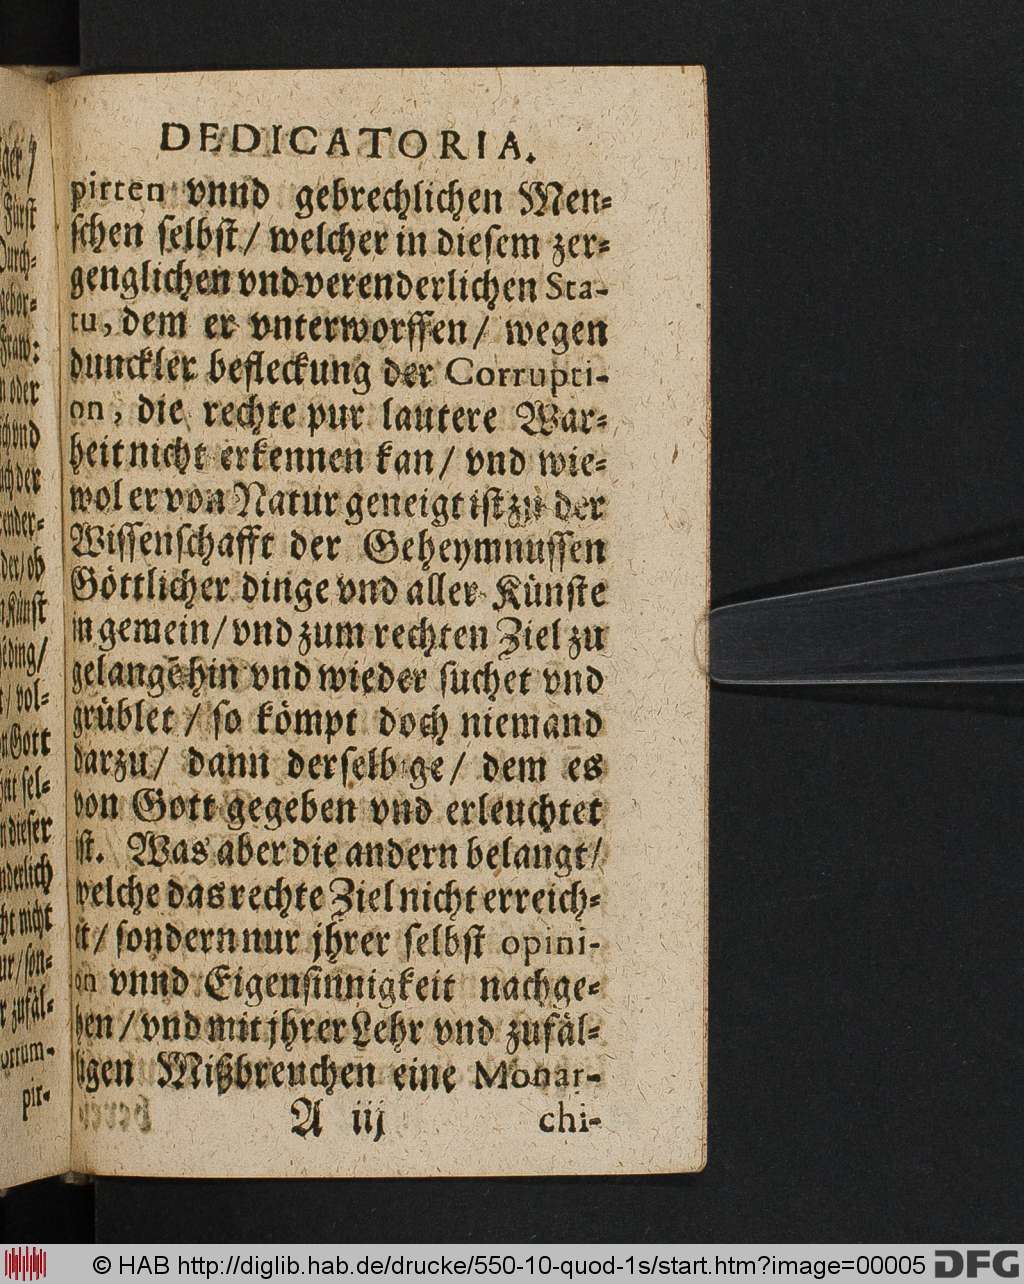 DEDICATORIA.
pirten vnnd gebrechlichen Men-
schen selbst/ welcher in diesem zer-
genglichen vnd verenderlichen Sta-
tu, dem er vnterworffen/ wegen
dunckler befleckung der Corrupti-
on, die rechte pur lautere War-
heit nicht erkennen kan/ vnd wie-
wol er von Natur geneigt ist zu der
Wissenschafft der Geheymnussen
Göttlicher dinge vnd aller Künste
in gemein/ vnd zum rechten Ziel zu
gelangē hin vnd wieder suchet vnd
grüblet/ so kömpt doch niemand
darzu/ dann derselbige/ dem es
von Gott gegeben vnd erleuchtet
ist. Was aber die andern belangt/
welche das rechte Ziel nicht erreich-
et/ sondern nur jhrer selbst opini-
on vnnd Eigensinnigkeit nachge-
hen/ vnd mit jhrer Lehr vnd zufäl-
ligen Mißbreuchen eine Monar-
A iij chi-
ger/
Fürst
Durch-
gebor-
Fraw:
oder
vnd
der
ender-
der/ ob
Künst
ding/
vol-
Gott
sel-
dieser
nderlich
nicht
son-
zufäl-
orrum-
pir-
© HAB http://diglib.hab.de/drucke/550-10-quod-1s/start.htm?image=00005
DFG